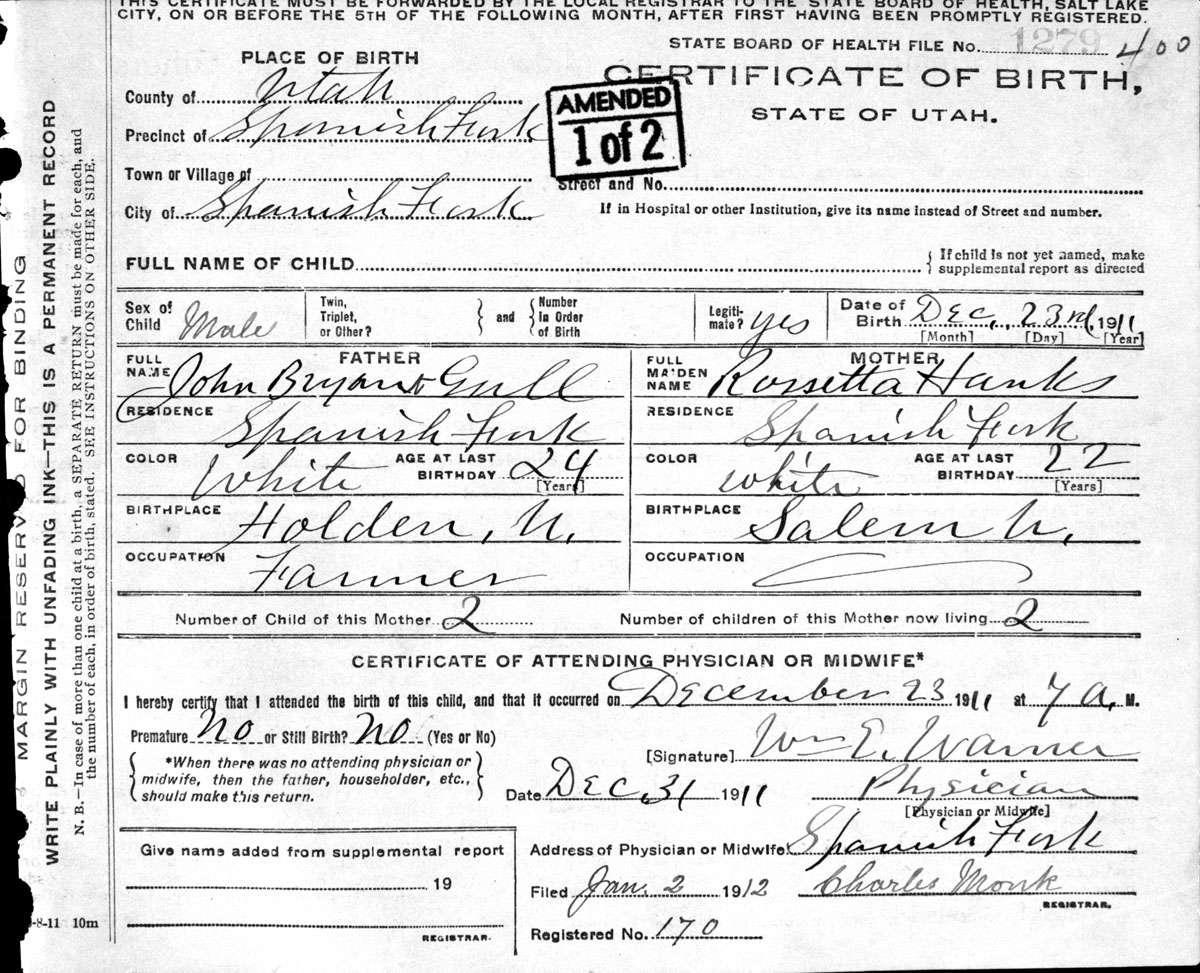 THIS CERTIFICATE MUST BE FORWARDED BY THE LOCAL REGISTRAR TO THE STATE BOARD OF HEALTH, SALT LAKE
CITY, ON OR BEFORE THE 5TH OF THE FOLLOWING MONTH, AFTER FIRST HAVING BEEN PROMPTLY REGISTERED.
STATE BOARD OF HEALTH FILE No. 1279 400
PLACE OF BIRTH
CERTIFICATE OF BIRTH,
STATE OF UTAH.
AMENDED
1 of 2
County of Utah
Precinct of Spanish Fork
Town or Village of
Street and No.
City of Spanish Fork
If in Hospital or other Institution, give its name instead of Street and number.
FULL NAME OF CHILD
{ If child is not yet named, make
supplemental report as directed
Sex of
Child Male
Twin,
Triplet,
or Other?
} and {
Number
in Order
of Birth
Legiti-
mate? yes
Date of
Birth Dec. 23rd, 1911
[Month] [Day] [Year]
FATHER
FULL
NAME John Bryant Gull
RESIDENCE
Spanish Fork
COLOR White
AGE AT LAST
BIRTHDAY 24
[Years]
BIRTHPLACE
Holden, U.
OCCUPATION
Farmer
MOTHER
FULL
MAIDEN
NAME Rossetta Hanks
RESIDENCE
Spanish Fork
COLOR White
AGE AT LAST
BIRTHDAY 22
[Years]
BIRTHPLACE
Salem U.
OCCUPATION
Number of Child of this Mother 2
Number of children of this Mother now living 2
CERTIFICATE OF ATTENDING PHYSICIAN OR MIDWIFE*
I hereby certify that I attended the birth of this child, and that it occurred on December 23 1911 at 7 a. M.
Premature No or Still Birth? No (Yes or No)
*When there was no attending physician or
midwife, then the father, householder, etc.,
should make this return.
[Signature] Wm E. Warner
Date Dec. 31 1911
Physician
[Physician or Midwife]
Address of Physician or Midwife Spanish Fork
Filed Jan. 2 1912
Charles Monk
REGISTRAR.
Registered No. 170
Give name added from supplemental report
19
REGISTRAR.
-8-11 10m
MARGIN RESERVED FOR BINDING
WRITE PLAINLY WITH UNFADING INK—THIS IS A PERMANENT RECORD
N. B.—In case of more than one child at a birth, a SEPARATE RETURN must be made for each, and
the number of each, in order of birth, stated. SEE INSTRUCTIONS ON OTHER SIDE.